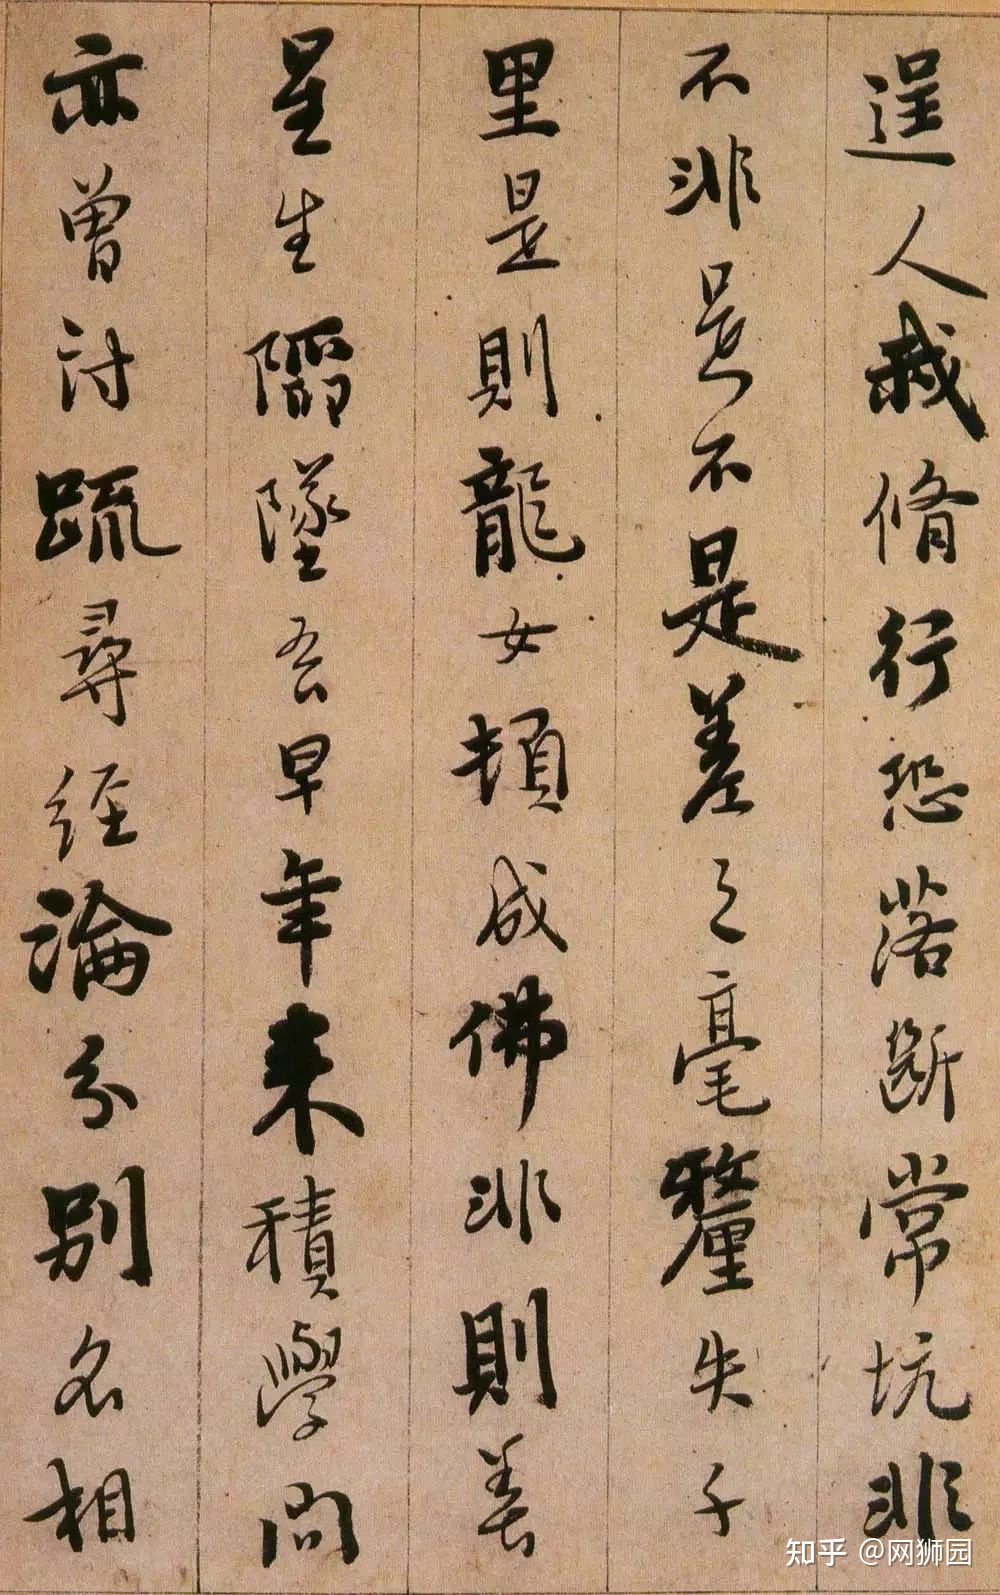 逞人我脩行恐落斷常坑非
不非是不是差之毫釐失千
里是則龍女頓成佛非則善
星生陷墜吾早年来積學問
亦曾討疏尋經論分別名相
知乎 @网狮园